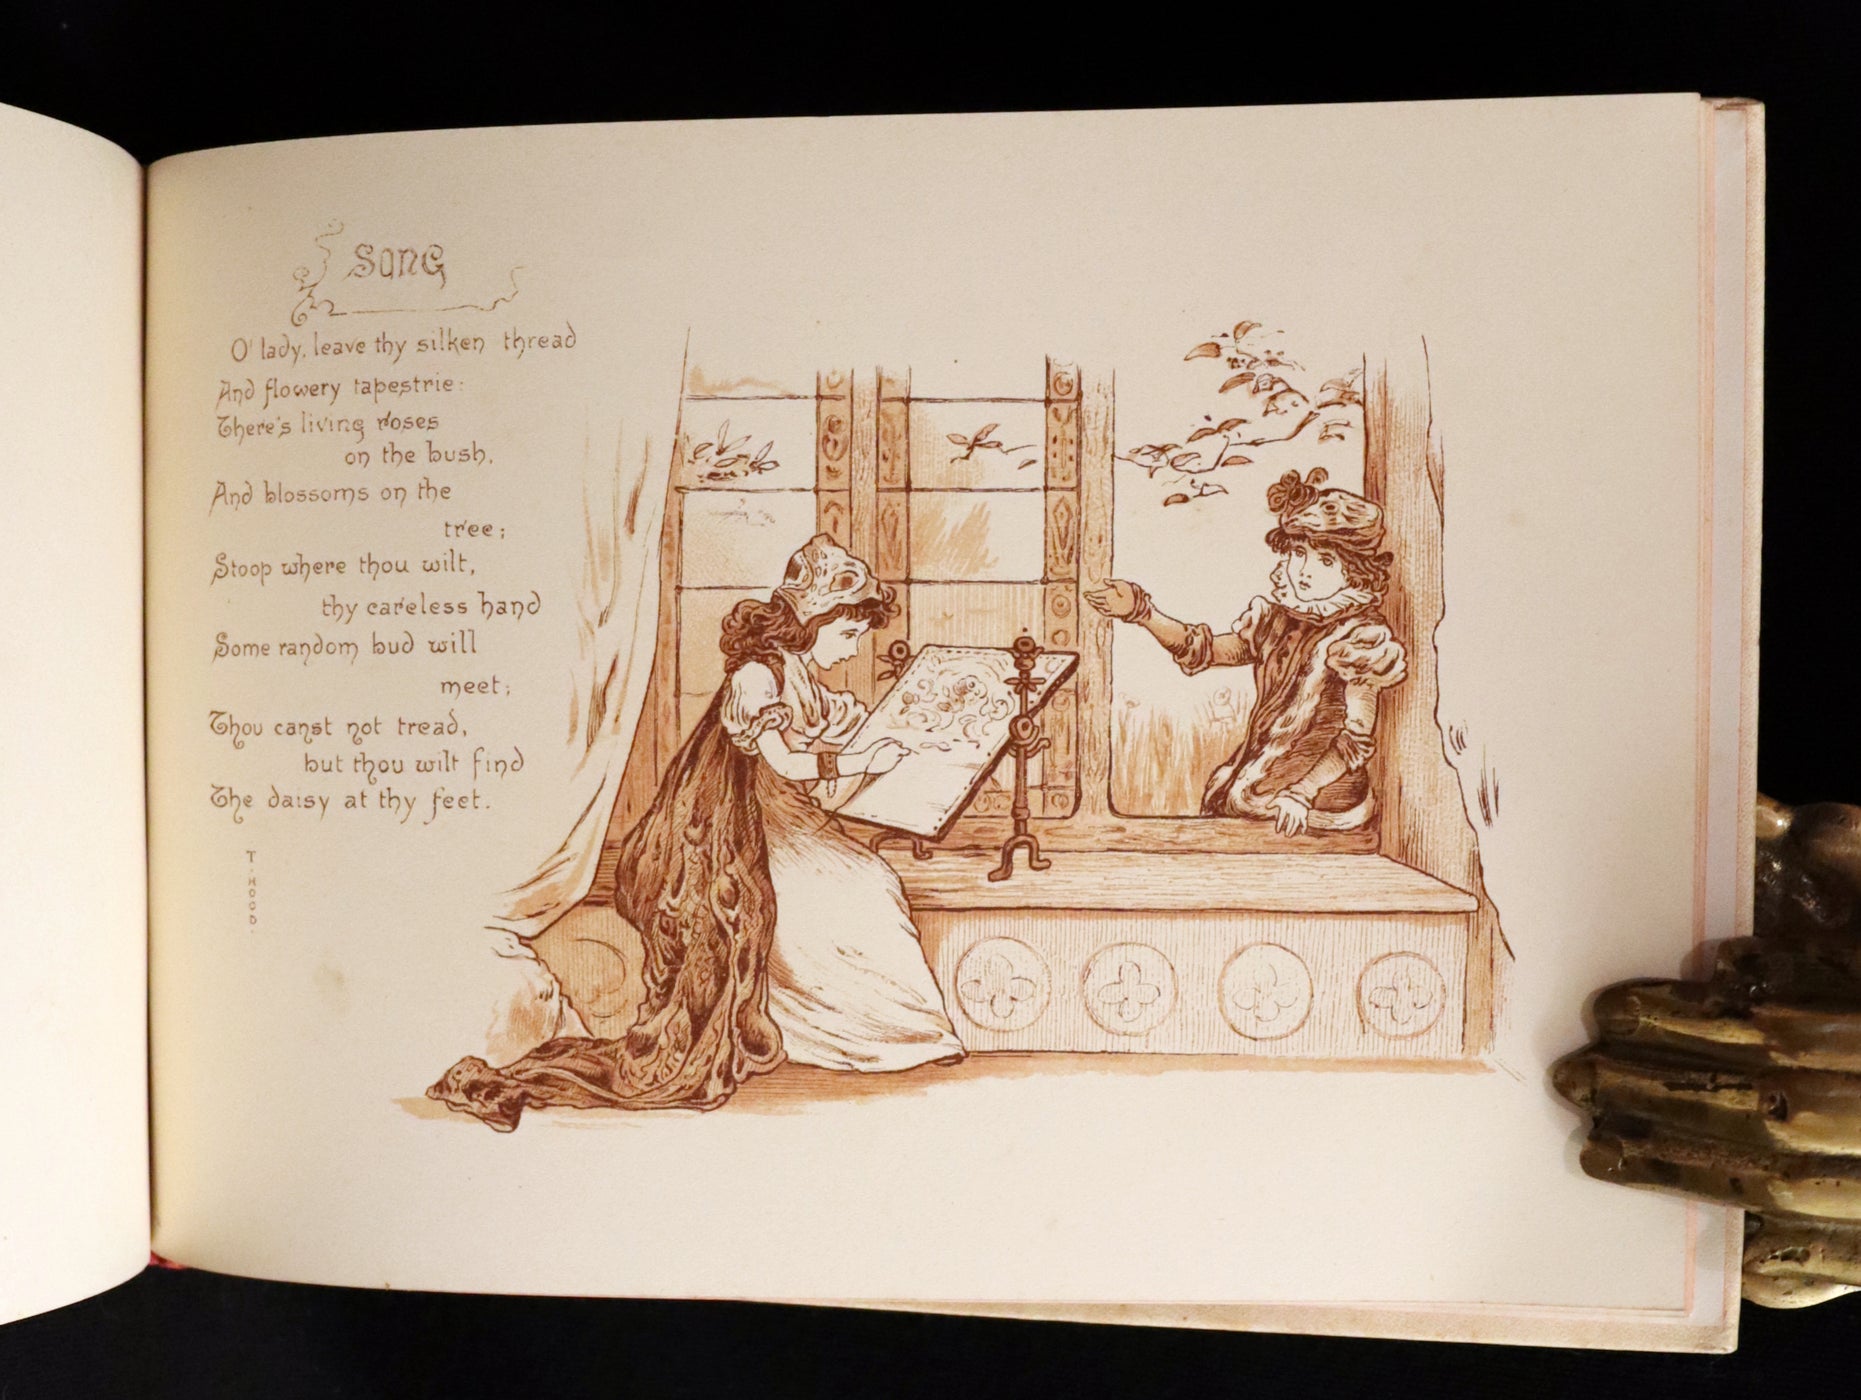 Song
O' lady, leave thy silken thread
And flowery tapestrie:
There's living roses
on the bush,
And blossoms on the
tree;
Stoop where thou wilt,
thy careless hand
Some random bud will
meet;
Thou canst not tread,
but thou wilt find
The daisy at thy feet.
T. HOOD.